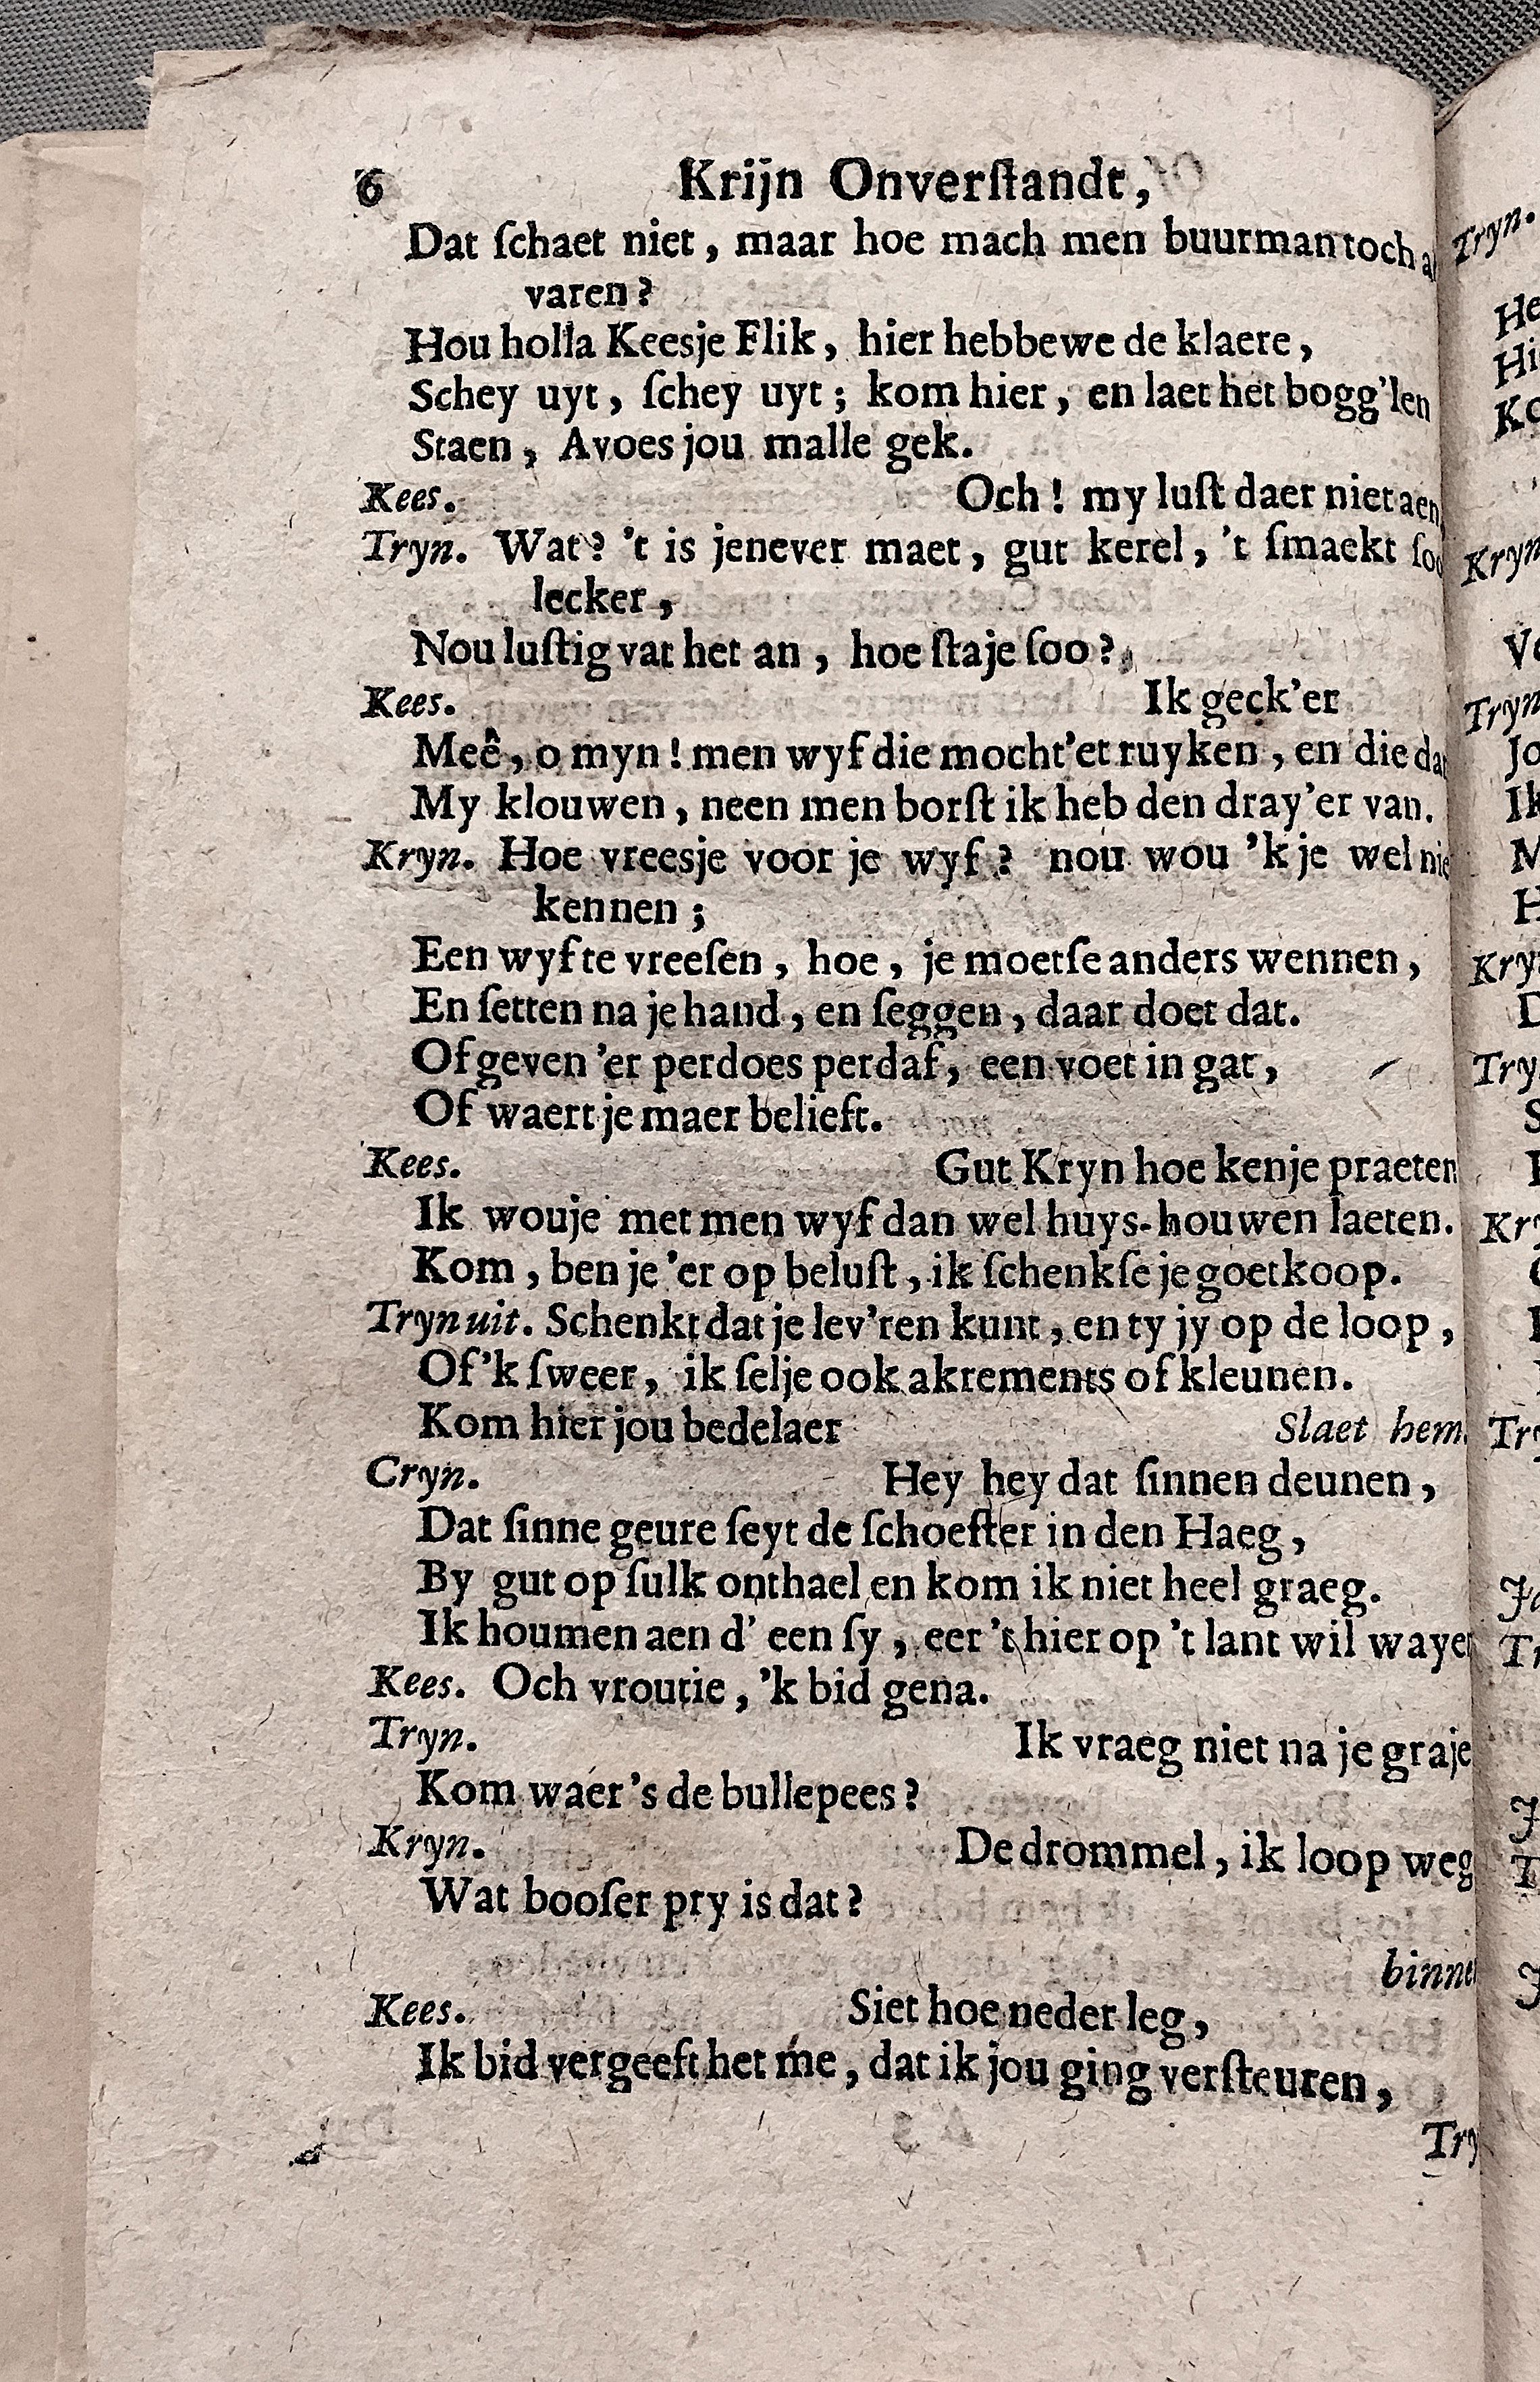 6 Krijn Onverſtandt,
Dat ſchaet niet, maar hoe mach men buurman toch
varen?
Hou holla Keesje Flik, hier hebbewe de klaere,
Schey uyt, ſchey uyt; kom hier, en laet het bogg'len
Staen, Avoes jou malle gek.
Kees. Och! my luſt daer niet aen
Tryn. Wat? 't is jenever maet, gut kerel, 't ſmaekt ſoo
lecker,
Nou luſtig vat het an, hoe ſtaje ſoo?
Kees. Ik geck'er
Meê, o myn! men wyf die mocht'et ruyken, en die
My klouwen, neen men borſt ik heb den dray'er van.
Kryn. Hoe vreesje voor je wyf? nou wou 'k je wel
kennen;
Een wyf te vreeſen, hoe, je moetſe anders wennen,
En ſetten na je hand, en ſeggen, daar doet dat.
Of geven 'er perdoes perdaf, een voet in gat,
Of waert je maer belieft.
Kees. Gut Kryn hoe kenje praeten
Ik wouje met men wyf dan wel huys-houwen laeten.
Kom, ben je 'er op beluſt, ik ſchenkſe je goetkoop.
Tryn uit. Schenkt dat je lev'ren kunt, en ty jy op de loop,
Of 'k ſweer, ik ſelje ook akrements of kleunen.
Kom hier jou bedelaer Slaet hem.
Cryn. Hey hey dat ſinnen deunen,
Dat ſinne geure ſeyt de ſchoeſter in den Haeg,
By gut op ſulk onthael en kom ik niet heel graeg.
Ik houmen aen d' een ſy, eer 't hier op 't lant wil waye
Kees. Och vroutie, 'k bid gena.
Tryn. Ik vraeg niet na je graje
Kom waer's de bullepees?
Kryn. De drommel, ik loop weg
Wat booſer pry is dat?
binne
Kees. Siet hoe neder leg,
Ik bid vergeeft het me, dat ik jou ging verſteuren,
Try